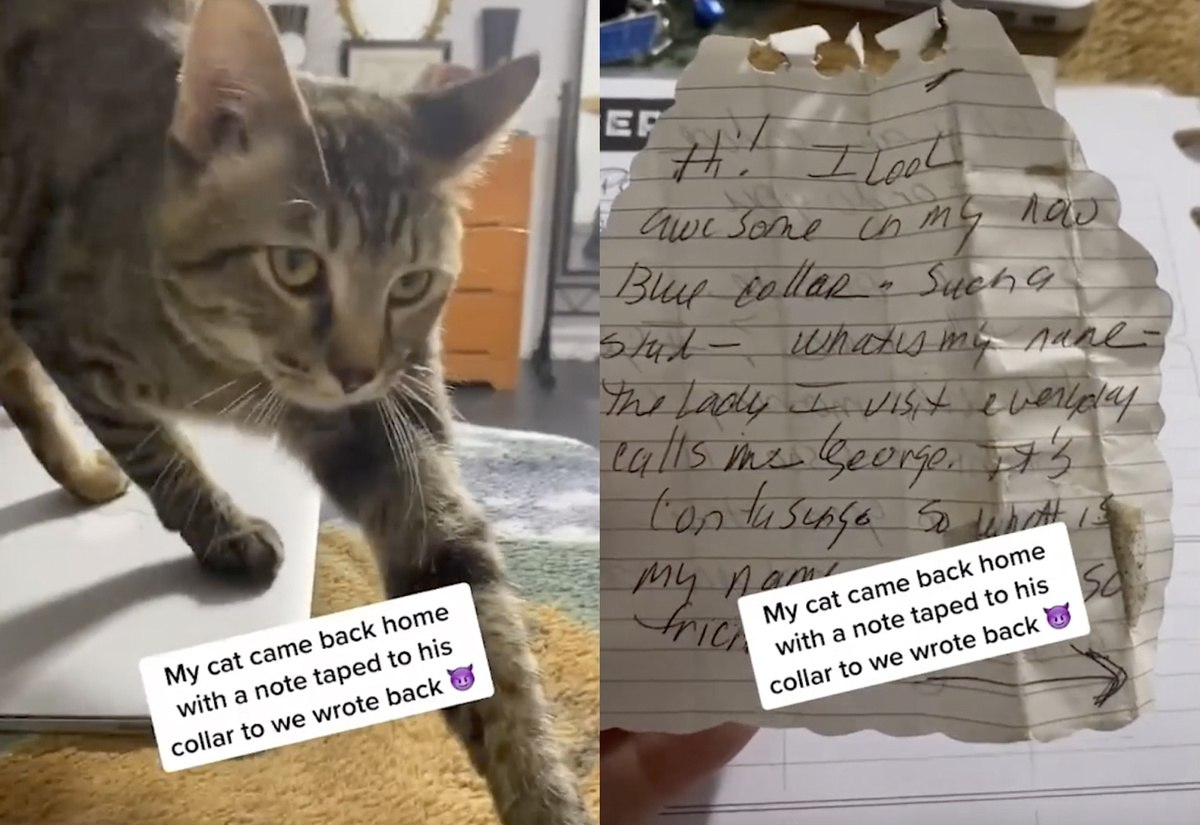 My cat came back home
with a note taped to his
collar to we wrote back 😈
ER
Hi! I look
awesome in my new
Blue collar - Such a
stud - what is my name -
the lady I visit everyday
calls me George. it's
confusing so what is
my so
My cat came back home
with a note taped to his
collar to we wrote back 😈